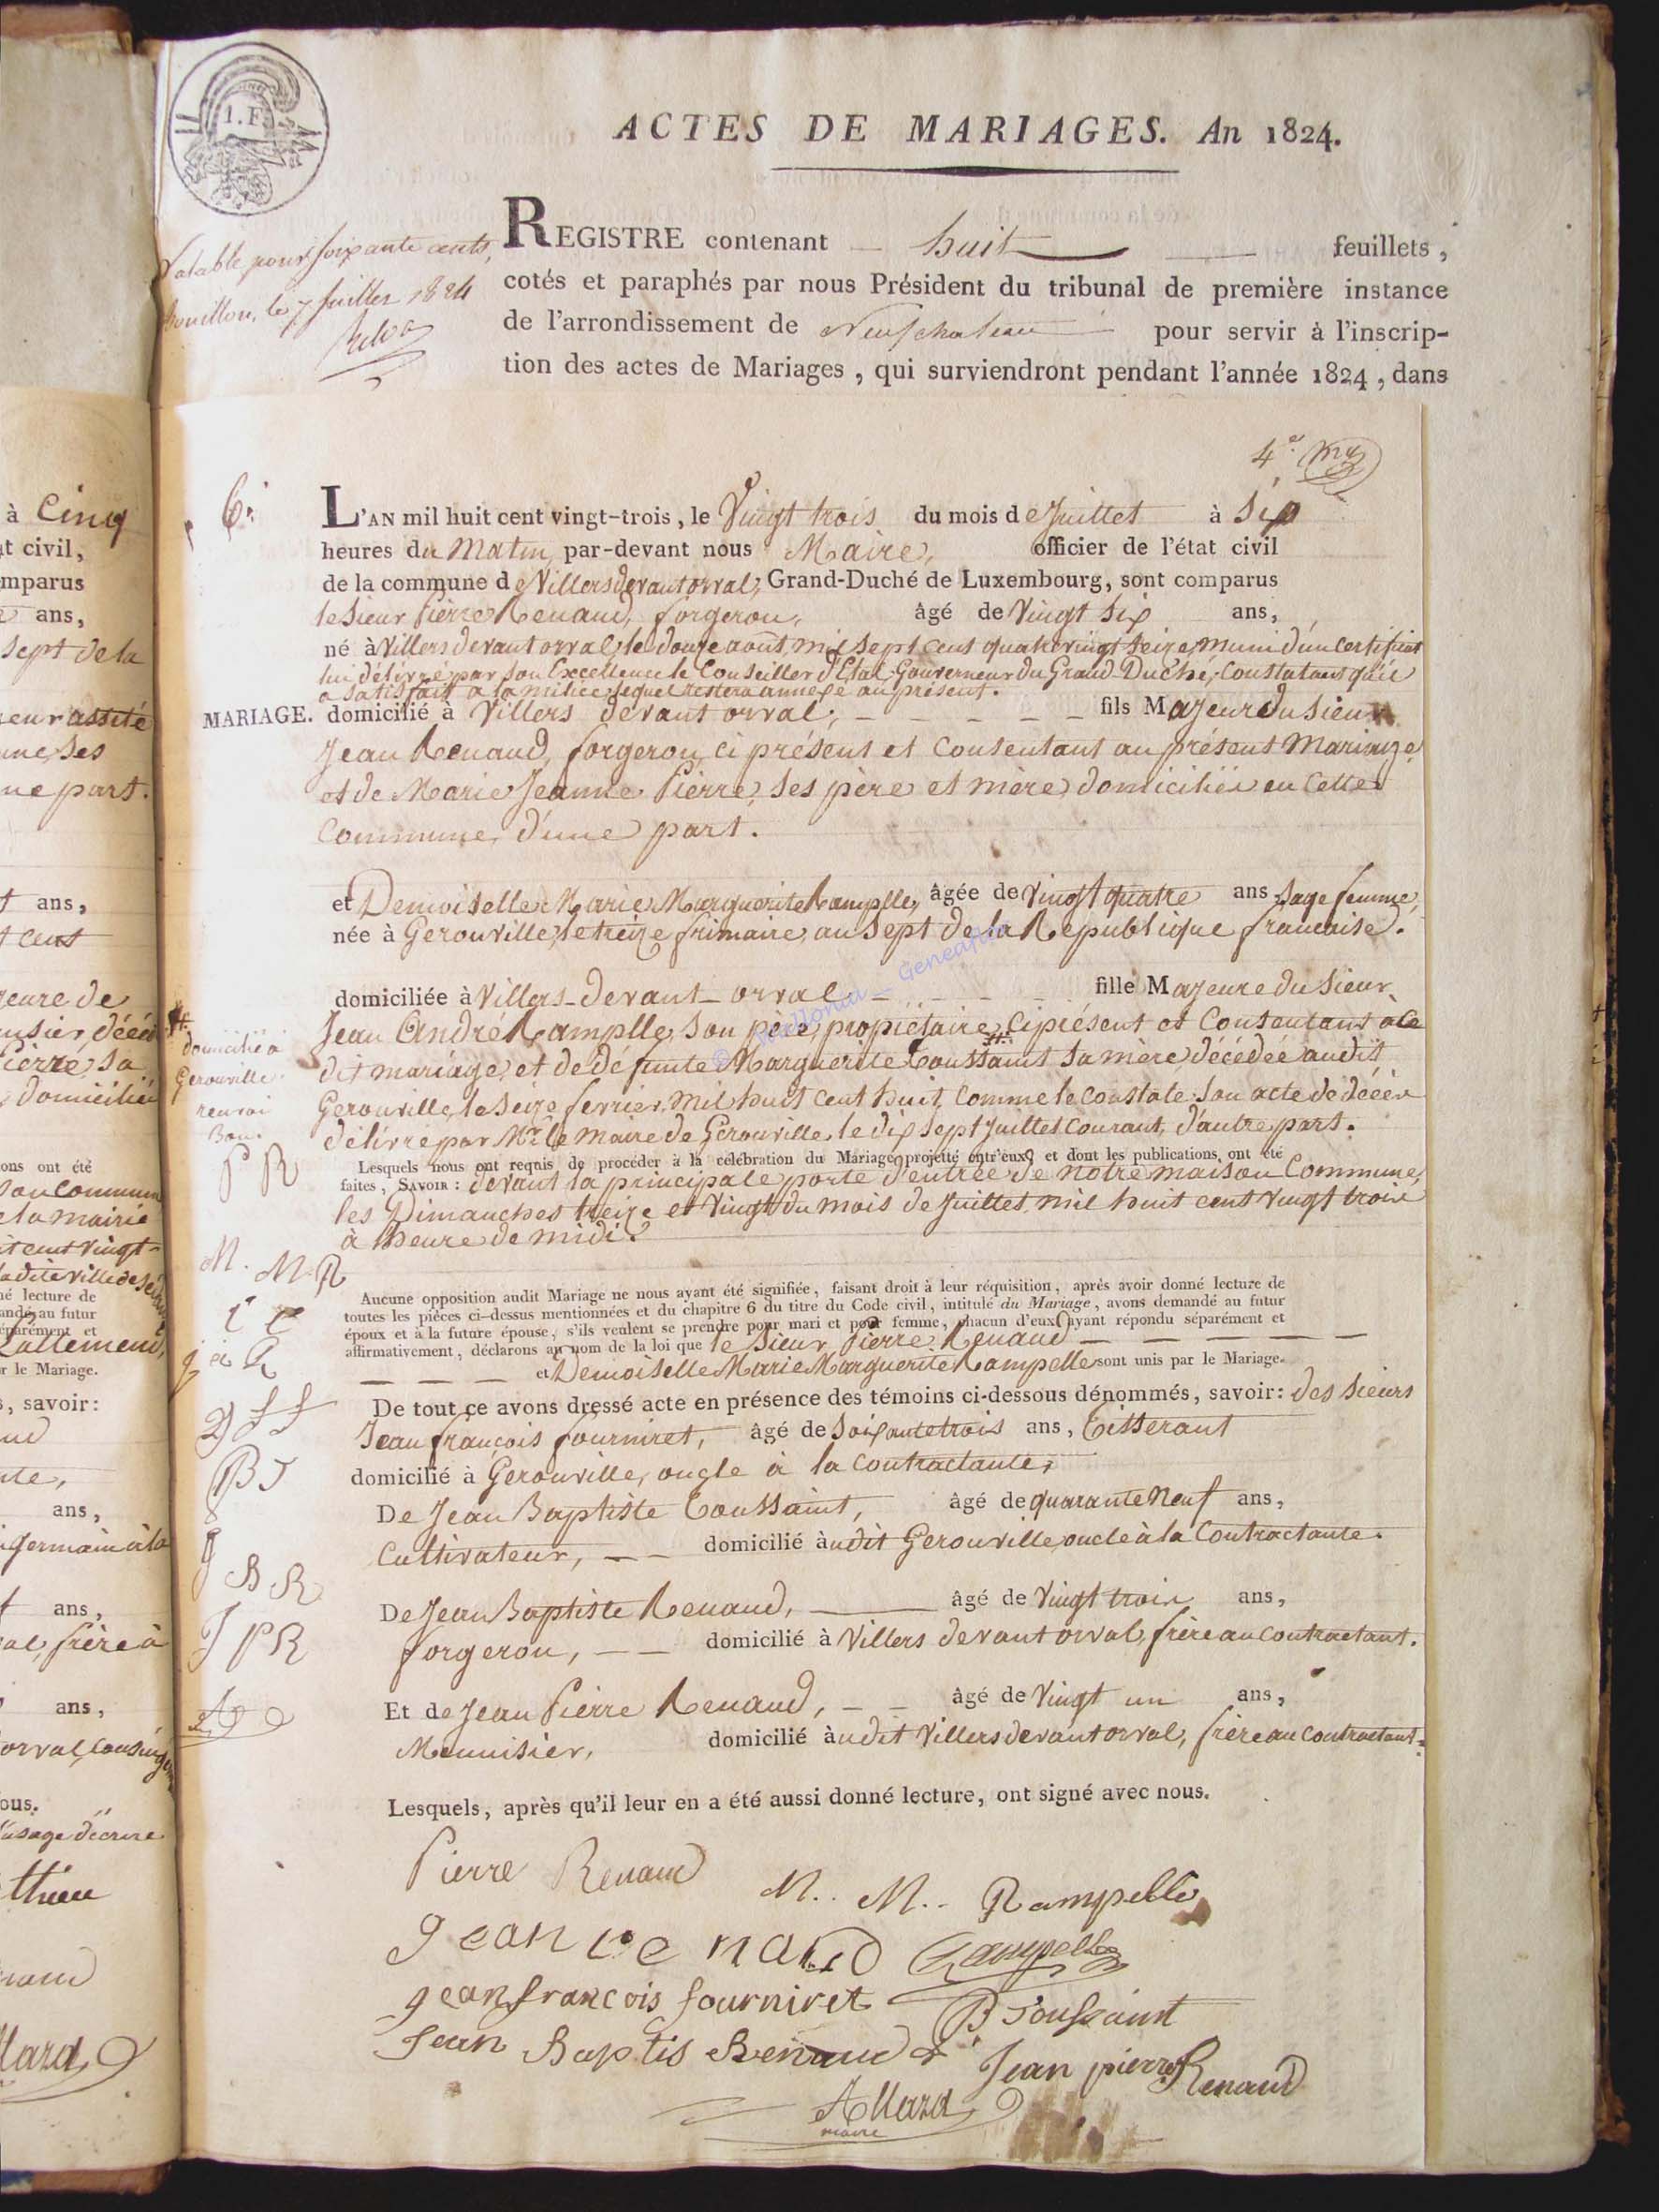 1. F.
ACTES DE MARIAGES. An 1824.
Valable pour soixante cents,
Bouillon, le 7 Juillet 1824
REGISTRE contenant huit feuillets,
cotés et paraphés par nous Président du tribunal de première instance
de l'arrondissement de Neufchateau pour servir à l'inscrip-
tion des actes de Mariages, qui surviendront pendant l'année 1824, dans
4e
6.
L'AN mil huit cent vingt-trois, le Vingt trois du mois de Juillet à Six
heures du Matin par-devant nous Maire, officier de l'état civil
de la commune de Villersdevantorval, Grand-Duché de Luxembourg, sont comparus
le Sieur Pierre Renaud, forgeron, âgé de Vingt Six ans,
né à Villersdevantorval, le douze août, mil sept cent quatrevingt seize, muni d'un certificat
lui délivré par Son Excellence le Conseiller d'Etat, Gouverneur du Grand-Duché, Constatant qu'il
a satisfait à la milice, lequel restera annexé au présent.
MARIAGE. domicilié à Villers devant orval, fils Majeur du Sieur
Jean Renaud, forgeron, ci présent et Consentant au présent Mariage
et de Marie Jeanne Pierre, ses père et mère, domiciliés en cette
Commune, d'une part.
et Demoiselle Marie Marguerite Rampelle, âgée de Vingt quatre ans, Sage femme,
née à Gerouville, le treize frimaire, an Sept de la République française.
domiciliée à Villers-devant-orval fille Majeure du Sieur
Jean André Rampelle, Son père, propriétaire, # ciprésent et Consentant à ce
dit mariage, et de défunte Marguerite Toussaint Sa mère, décédée audit
Gerouville, le Seize fevrier, mil huit cent huit, Comme le constate Son acte de décès
délivré par Mr. le Maire de Gerouville, le dix Sept Juillet Courant, d'autre part.
# domicilié à
Gerouville
renvoi
Bon.
P R
Lesquels nous ont requis de procéder à la célébration du Mariage projetté entr'eux, et dont les publications ont été
faites, SAVOIR: devant la principale porte d'entrée de notre maison Commune,
les Dimanches treize et Vingt du mois de Juillet, mil huit cent Vingt trois
à l'heure de midi.
M. M. R
Aucune opposition audit Mariage ne nous ayant été signifiée, faisant droit à leur réquisition, après avoir donné lecture de
toutes les pièces ci-dessus mentionnées et du chapitre 6 du titre du Code civil, intitulé du Mariage, avons demandé au futur
époux et à la future épouse, s'ils veulent se prendre pour mari et pour femme, chacun d'eux ayant répondu séparément et
affirmativement, déclarons au nom de la loi que le Sieur Pierre Renaud
et Demoiselle Marie Marguerite Rampelle sont unis par le Mariage.
De tout ce avons dressé acte en présence des témoins ci-dessous dénommés, savoir: des Sieurs
Jean françois fourniret, âgé de Soixantetrois ans, Tisserant
domicilié à Gerouville, oncle à la Contractante,
B T
De Jean Baptiste Toussaint, âgé de quarante Neuf ans,
Cultivateur, domicilié audit Gerouville, oncle à la Contractante.
J B R
De Jean Baptiste Renaud, âgé de Vingt trois ans,
forgeron, domicilié à Villers devant orval, frère au contractant.
J P R
Et de Jean Pierre Renaud, âgé de Vingt un ans,
Menuisier, domicilié audit Villersdevantorval, frère au contractant.
Lesquels, après qu'il leur en a été aussi donné lecture, ont signé avec nous.
Pierre Renaud M.. M.. Rampelle
Jean renaud Rampelle
jean francois fourniret B Toussaint
Jean Baptis Renaud Jean pierre Renaud
Allard
maire
à Cinq
at civil,
mparus
ans,
sept de la
ne part.
ans,
t cent
domicilié
ons ont été
é lecture de
andé au futur
éparément et
Lallemend,
r le Mariage.
s, savoir:
ans,
germain à la
ans,
al, frère à
ans,
orval, cousin
ous.
usage décrire